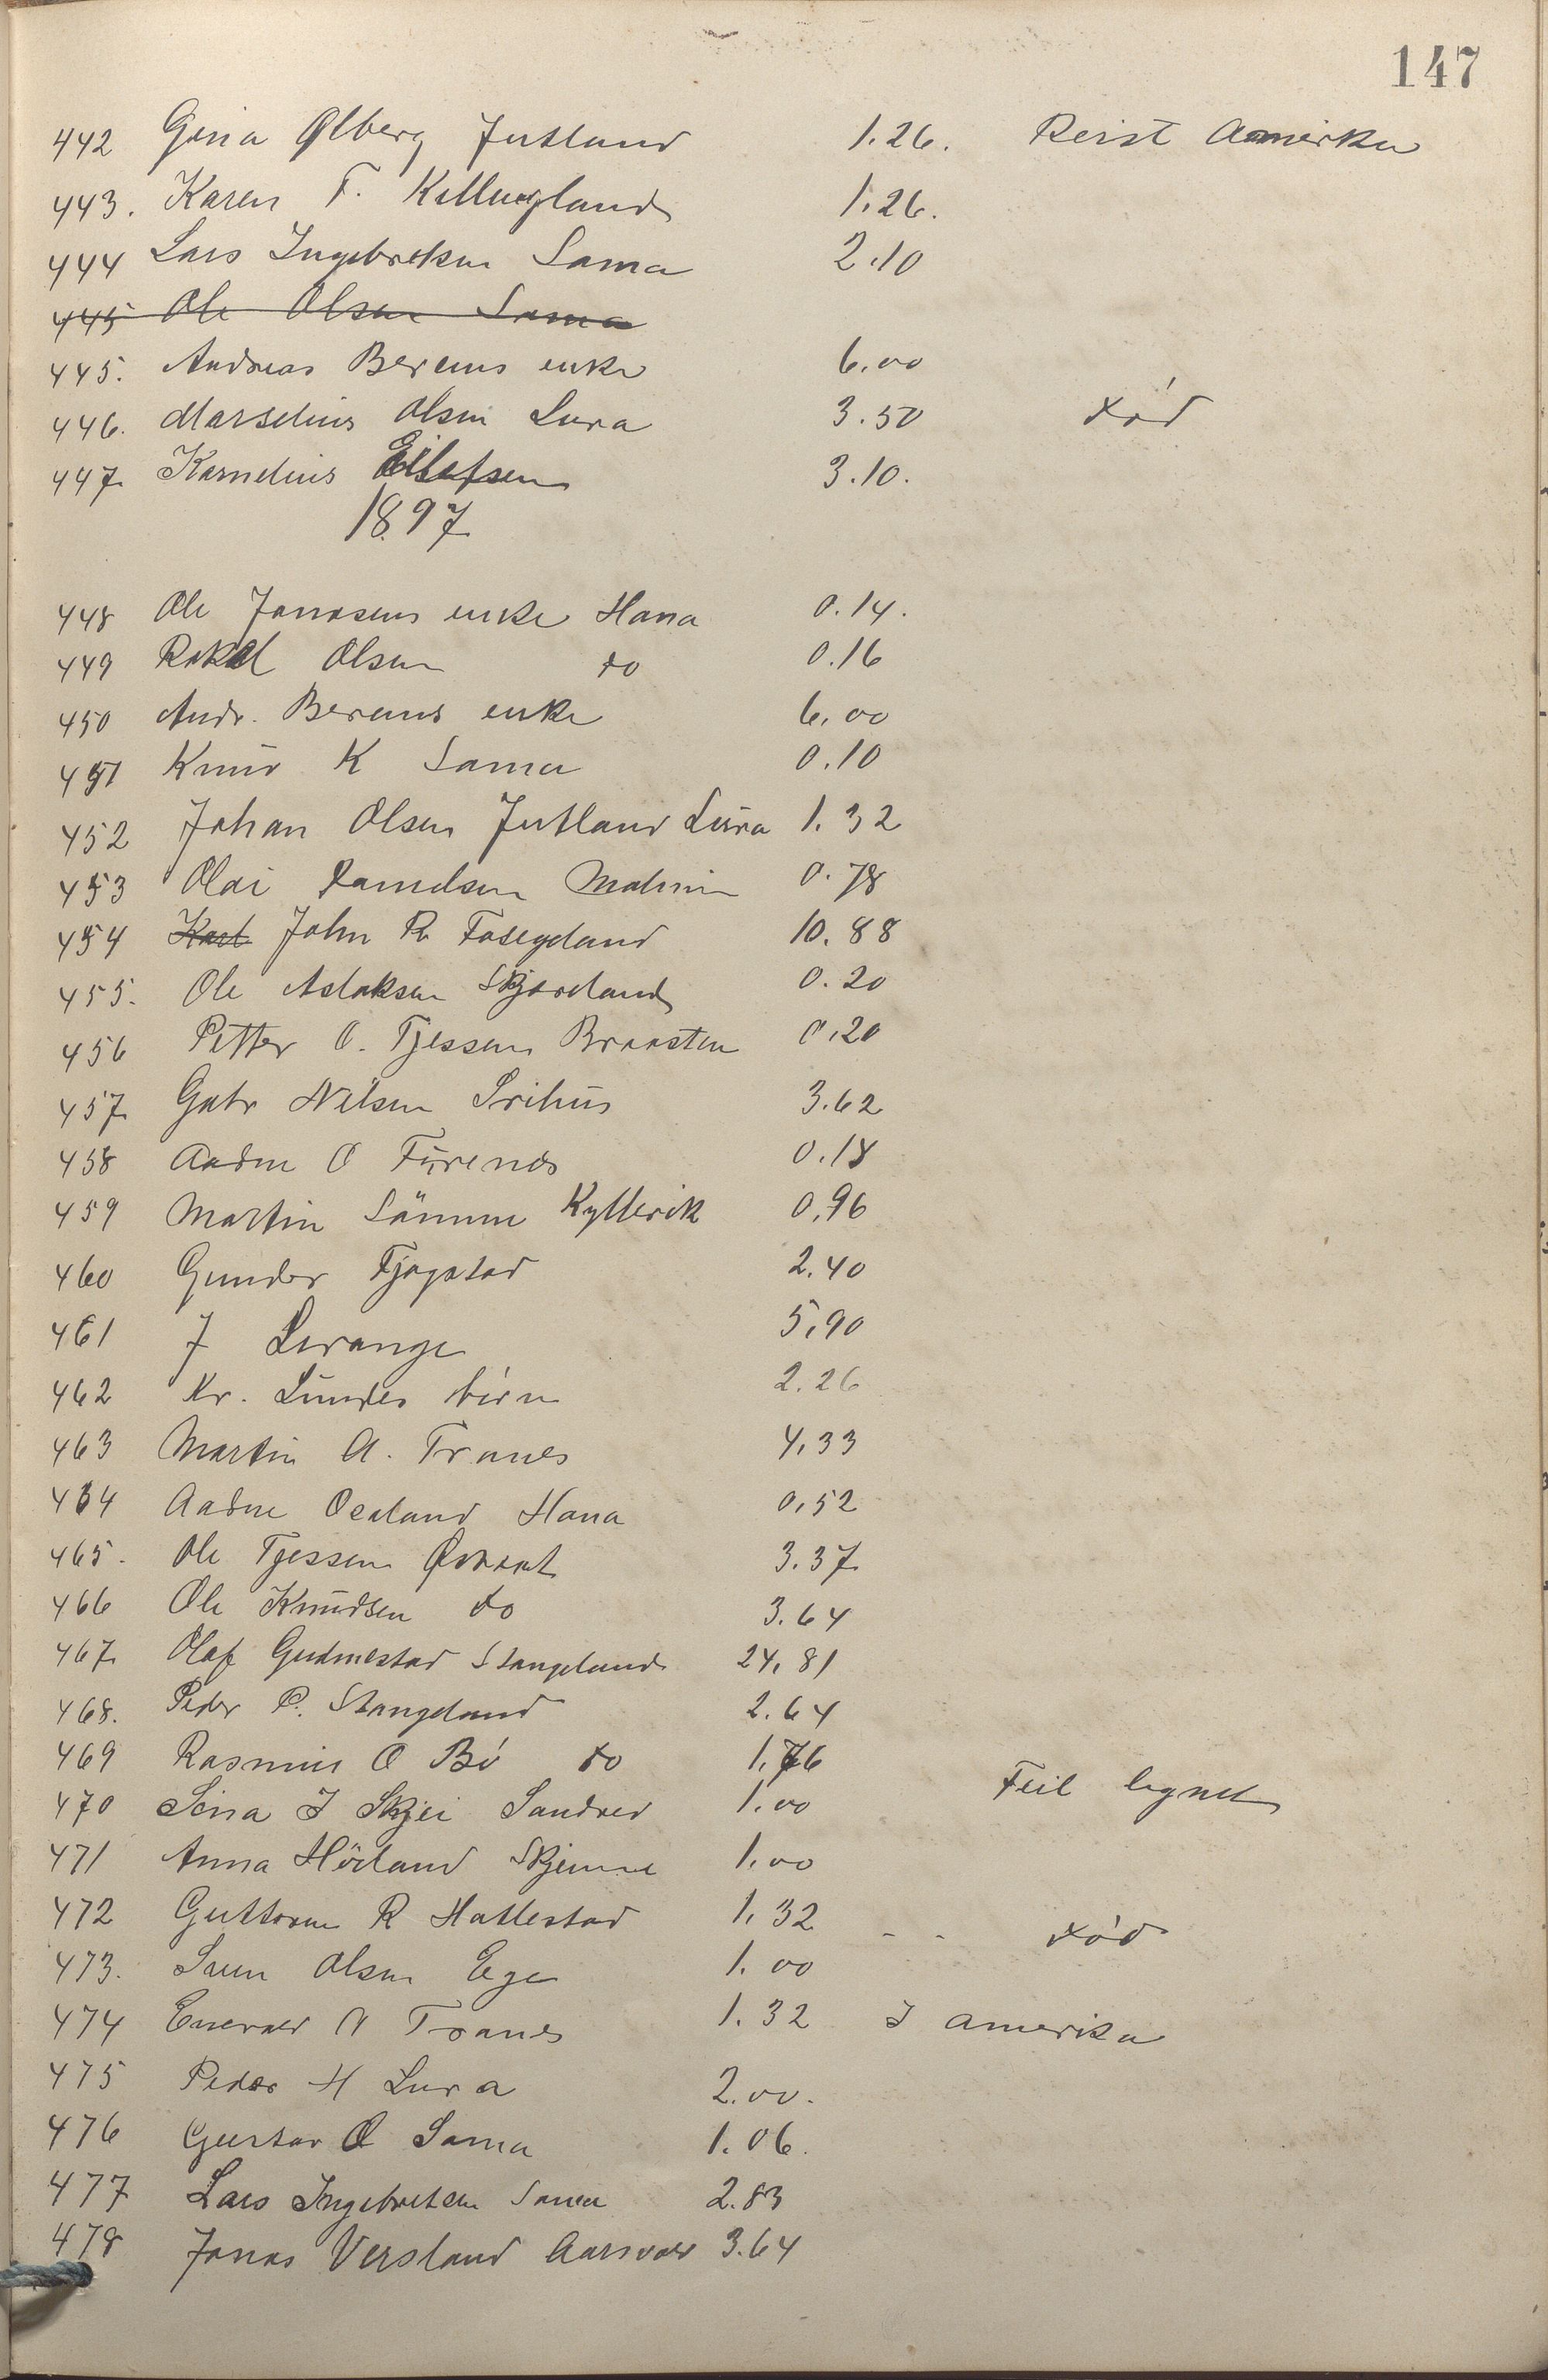 147
442 Gina Ølberg Jutland 1.26. Reist Amerika
443. Karen T. Kellugland 1.26.
444 Lars Ingebretsen Soma 2.10
445 Ole Olsen Soma
445. Andreas Berents enke 6.00
446. Marselius Olsen Lura 3.50 död
447. Karnelius Eilefsen 3.10.
1897
448 Ole Jonasens enke Hana 0.14.
449 Rakel Olsen do 0.16
450 Andr. Berents enke 6.00
451 Knud K Soma 0.10
452 Johan Olsen Jutland Lura 1.32
453 Olai Danielsen Malmin 0.78
454 Karl John R Foseyeland 10.88
455. Ole Aslaksen Skjæveland 0.20
456 Petter O. Tjessem Braasten 0.20
457. Gabr Nilsen Srihus 3.62
458 Aadne O Fürenes 0.18
459 Martin Sömme Kyllevik 0.96
460 Gunder Fjogstad 2.40
461 J Levange 5.90
462 Kr. Lundes börn 2.26
463 Martin A. Tranes 4.33
464 Aadne Oealand Hana 0.52
465. Ole Tjessem Østraat 3.37
466 Ole Knudsen do 3.64
467. Olaf Gudmestad Stangeland 24.81
468. Peder P. Stangeland 2.64
469 Rasmus O Bö do 1.76
470 Sina J Skjei Sandved 1.00 Feil lignet
471 Anna Höiland Skjeine 1.00
472 Guttorm R Hatlestad 1.32 - - död
473. Sven Olsen Ege 1.00
474 Enevald A Tranes 1.32 I Amerika
475 Peder H Lura 2.00.
476 Gustav O Soma 1.06.
477 Lars Ingebretsen Soma 2.83
478 Jonas Versland Aarsvold 3.64